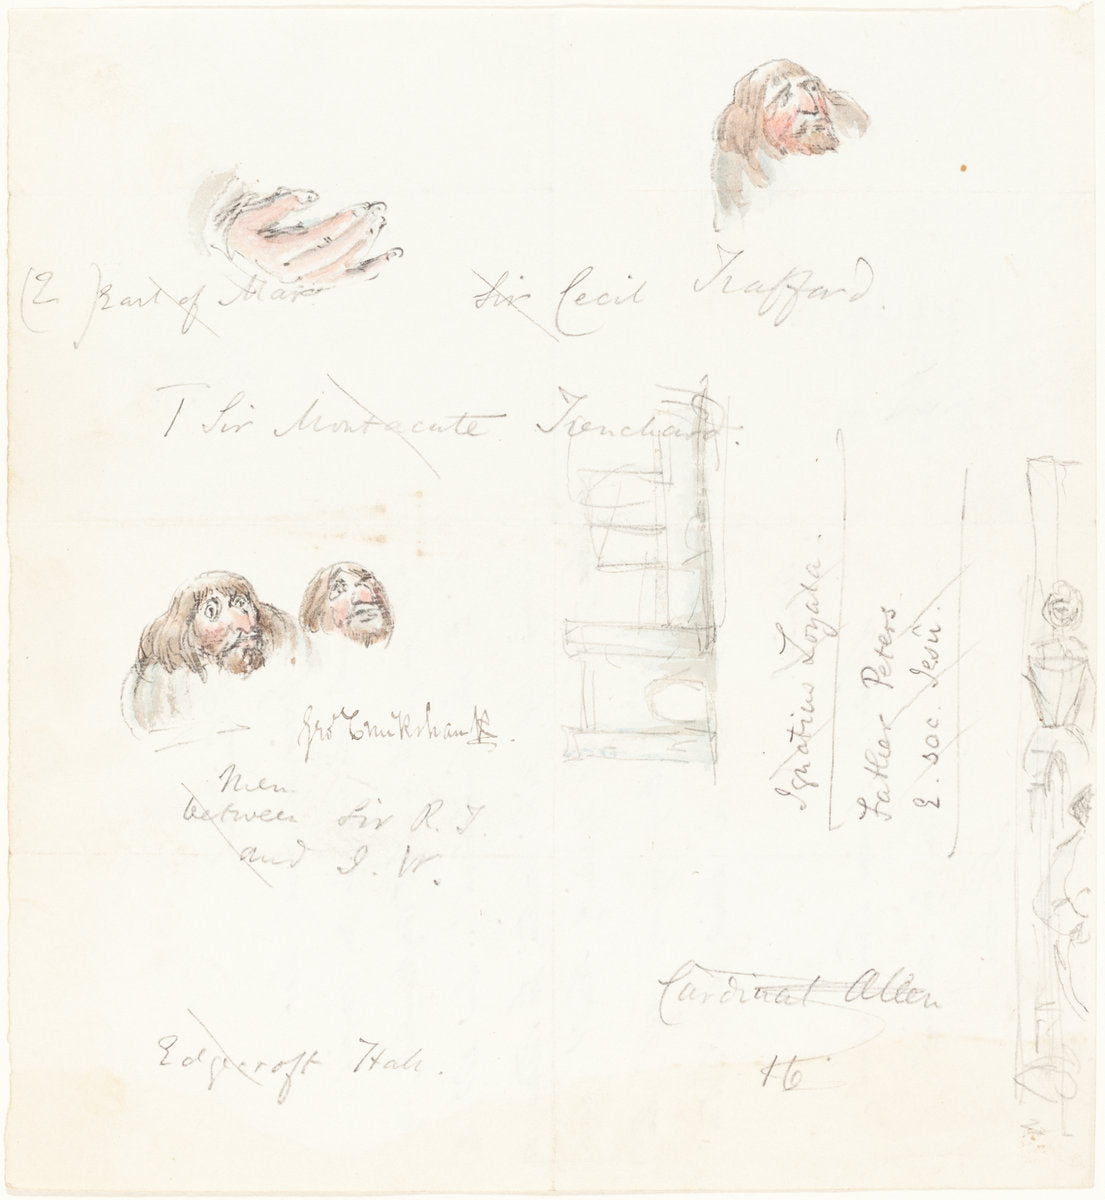 (2) Earl of Mar
Sir Cecil Trafford.
T Sir Montacute Trenchard.
Ignatius Loyala.
Father Peters
E. soc. Jesu.
Geo Cruikshank.
Men
between Sir R. T.
and I. W.
Cardinal Allen
16
Edgecroft Hall.